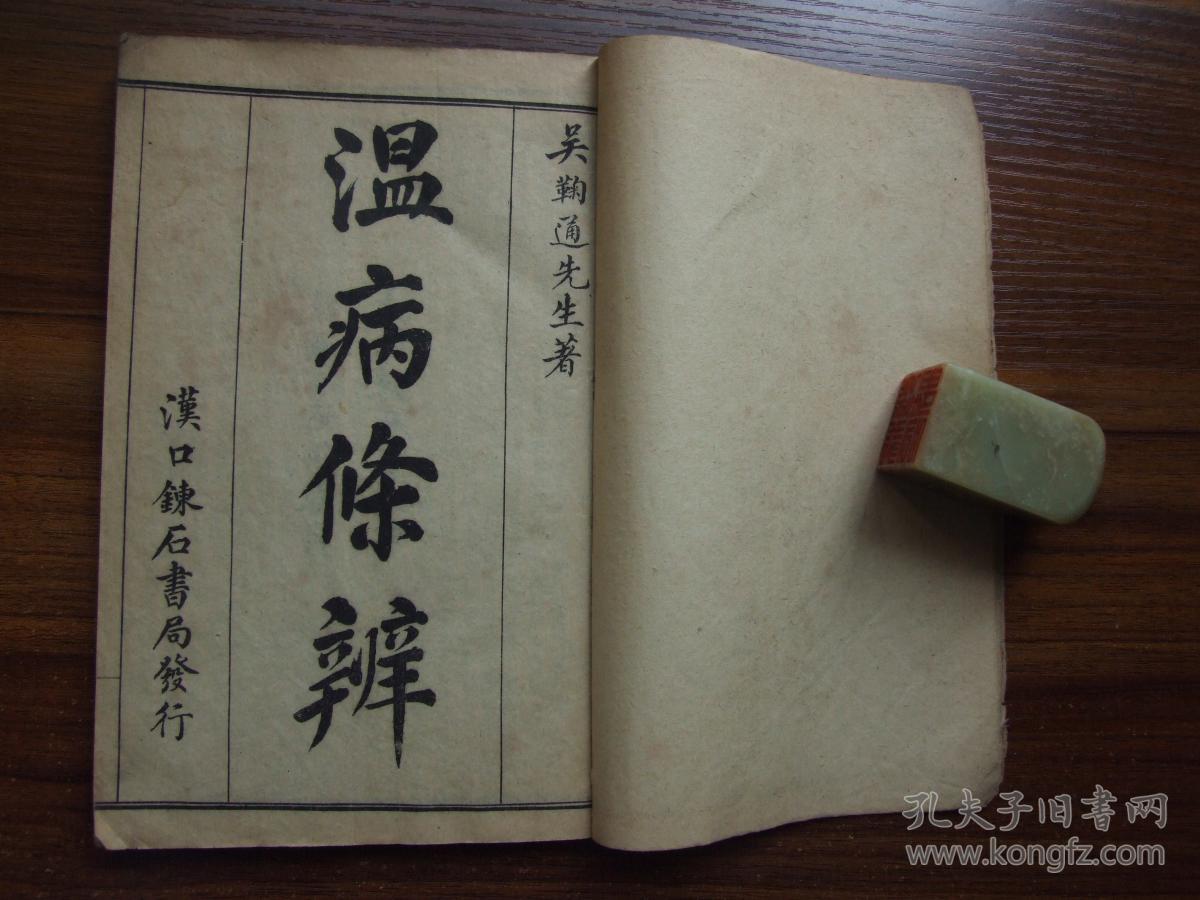 吴鞠通先生著
温病條辨
漢口鍊石書局發行
孔夫子旧书网
www.kongfz.com